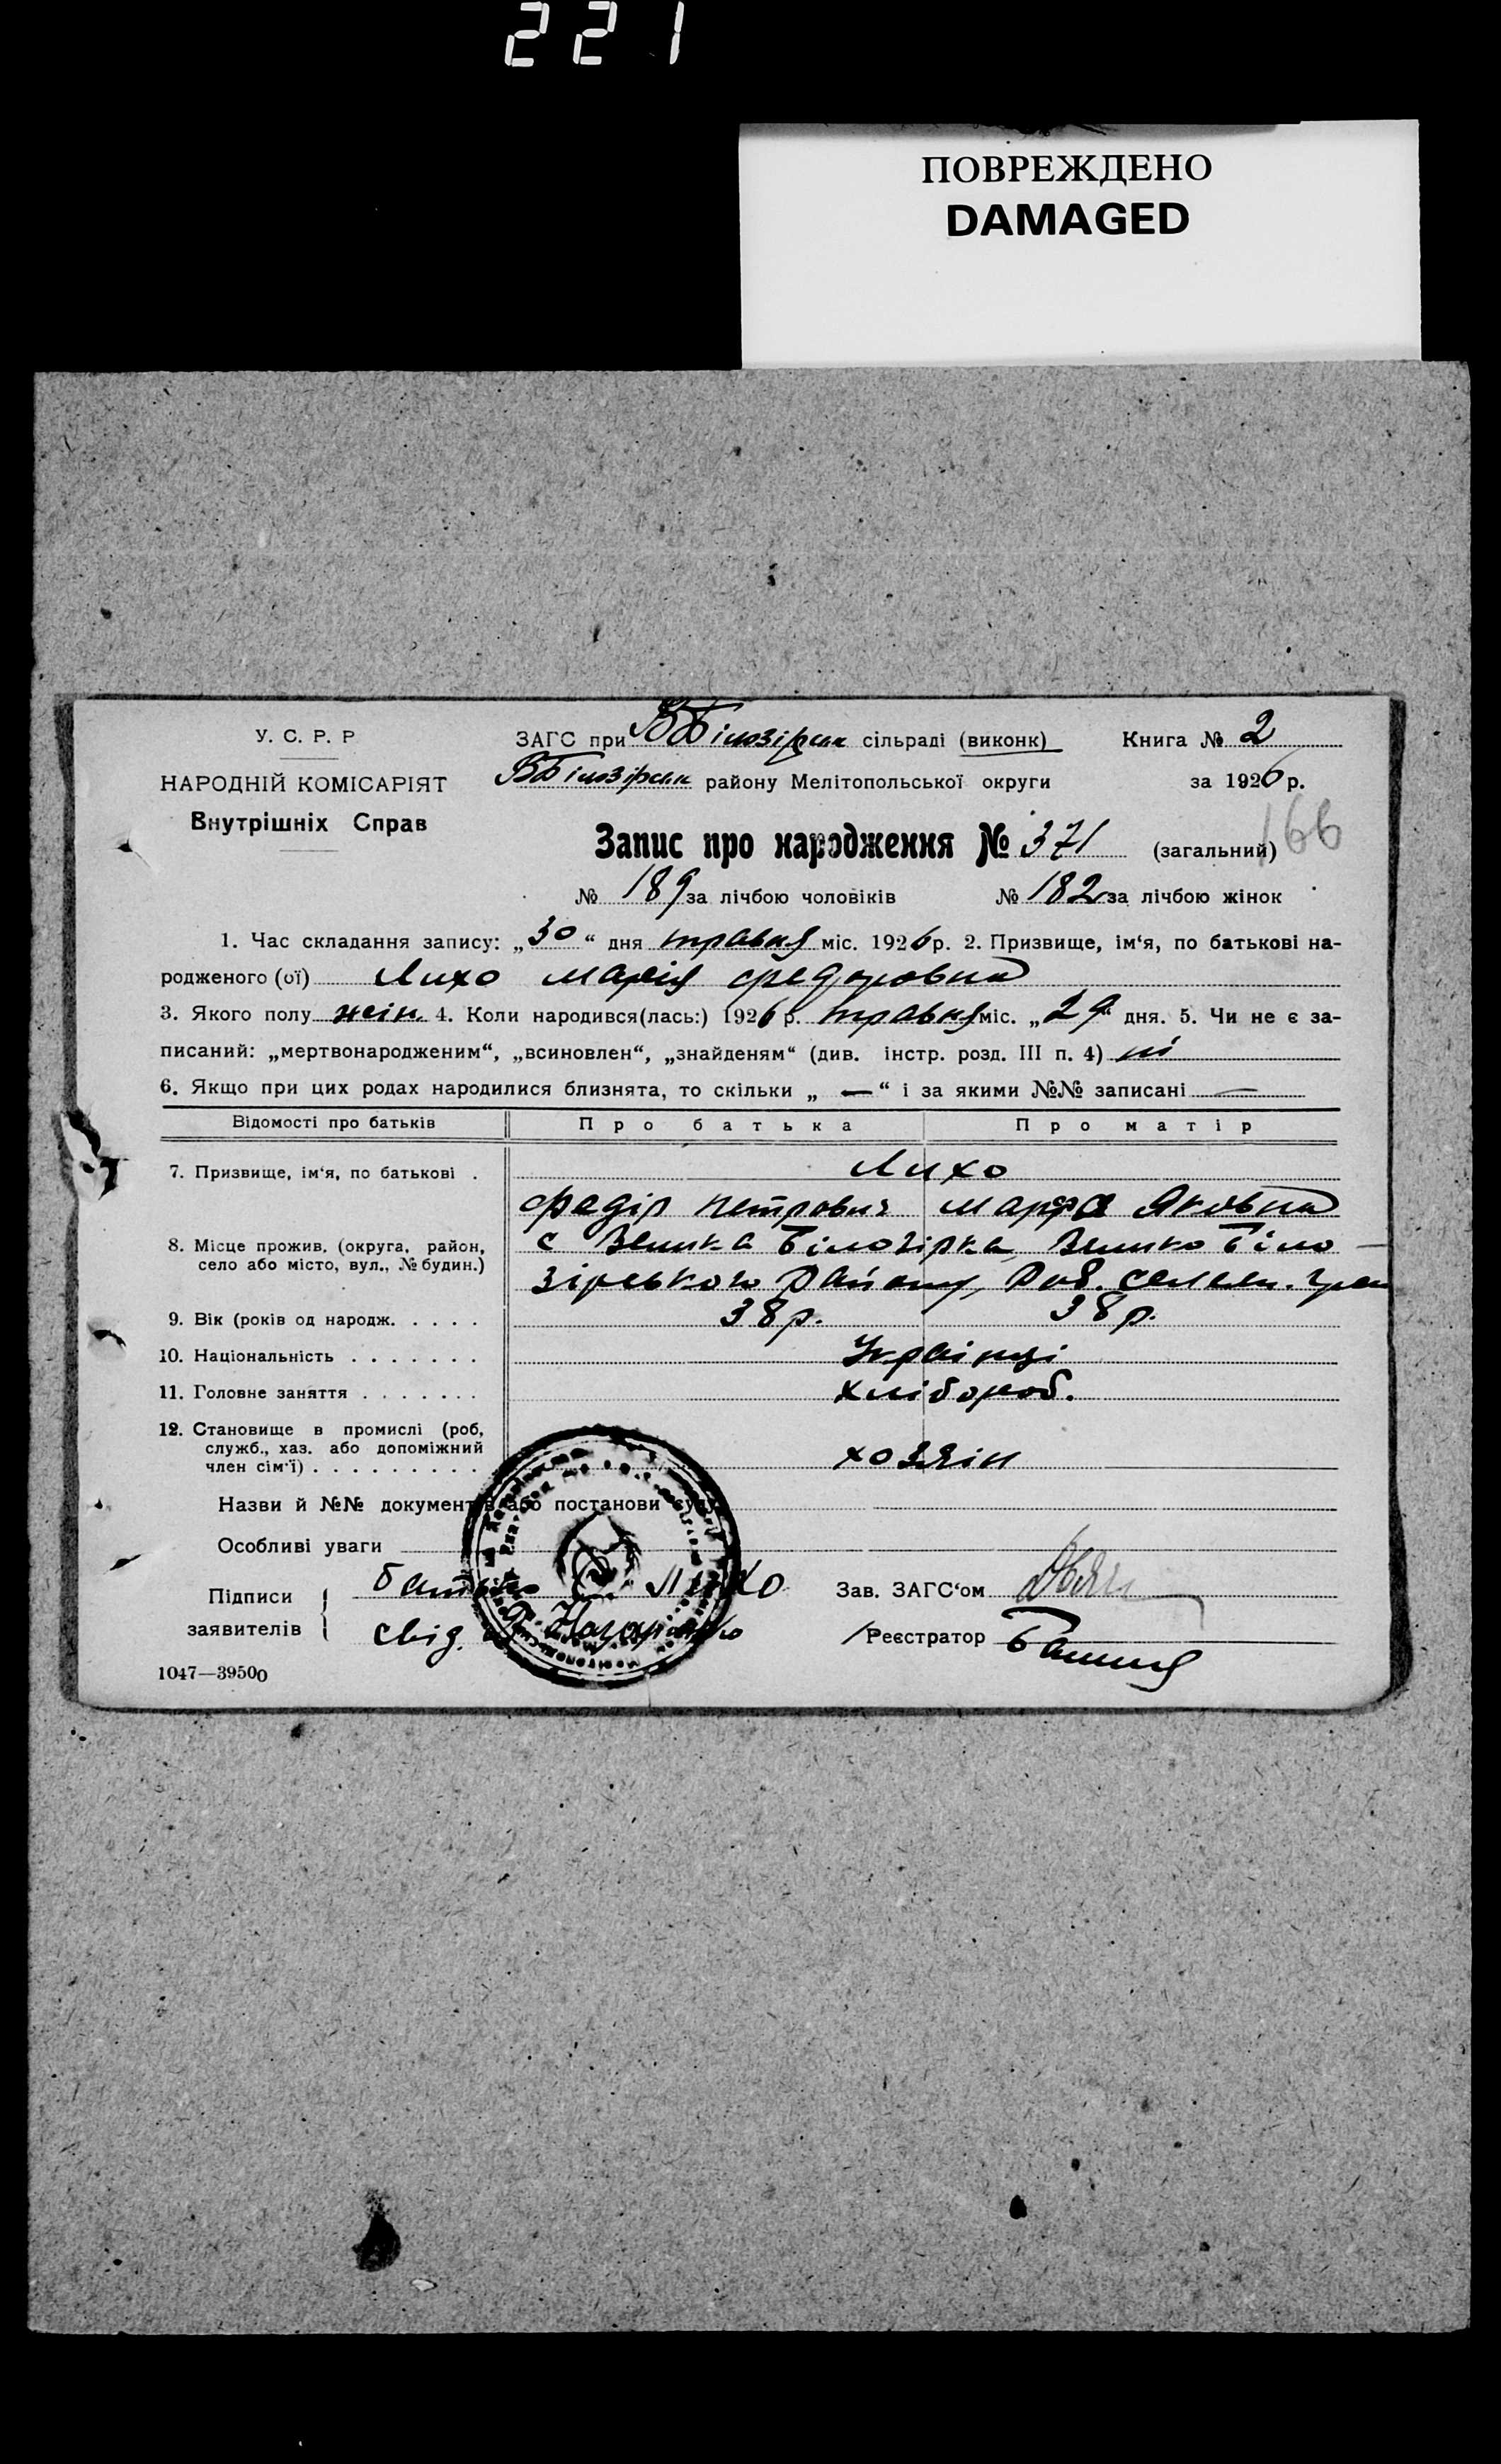 221
ПОВРЕЖДЕНО
DAMAGED
У. С. Р. Р
НАРОДНІЙ КОМІСАРІЯТ
Внутрішніх Справ
ЗАГС при ВБілозірськ сільраді (виконк) Книга № 2
ВБілозірськ району Мелітопольської округи за 1926 р.
166
Запис про народження № 371 (загальний)
№ 189 за лічбою чоловіків № 182 за лічбою жінок
1. Час складання запису: „30“ дня травня міс. 1926 р. 2. Призвище, ім‘я, по батькові на-
родженого (ої) Лихо Марія Федоровна
3. Якого полу жін. 4. Коли народився(лась:) 1926 р. травня міс. „29“ дня. 5. Чи не є за-
писаний: „мертвонародженим“, „всиновлен“, „знайденям“ (див. інстр. розд. III п. 4) ні
6. Якщо при цих родах народилися близнята, то скільки „ — “ і за якими №№ записані —
Відомості про батьків Про батька Про матір
7. Призвище, ім‘я, по батькові . Лихо
Федір Петрович Марфа Яковна
8. Місце прожив. (округа, район, с Велика Білозірка, Велико Біло
село або місто, вул., № будин.) зірського району,
9. Вік (років од народж. . . . . 38 р. 38 р.
10. Національність . . . . . . . Українці
11. Головне заняття . . . . . . . хлібороб.
12. Становище в промислі (роб,
служб., хаз. або допоміжний
член сім‘ї) . . . . . . . . . хозяін
Назви й №№ документів або постанови суду
Особливі уваги
Підписи батько Лихо Зав. ЗАГС‘ом
заявителів свід. Назаренко Реєстратор
1047—39500